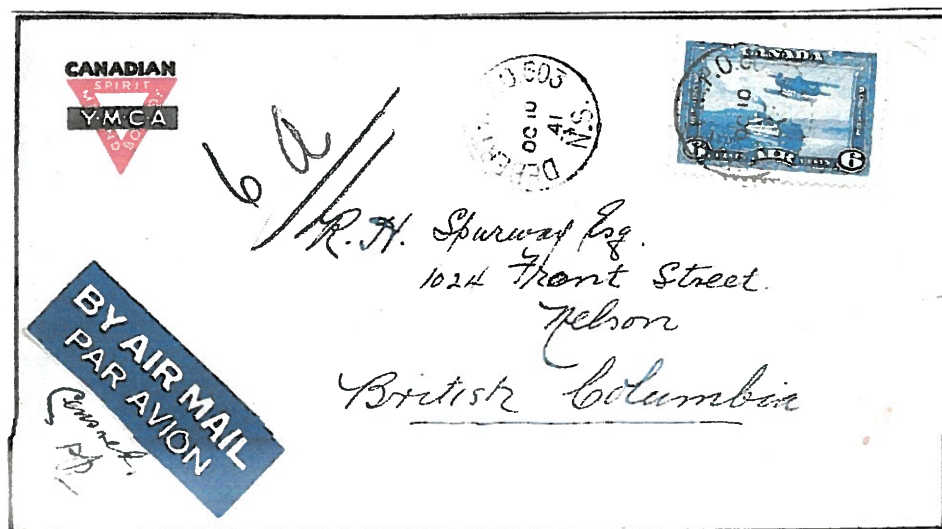 CANADIAN
SPIRIT
MIND BODY
Y·M·C·A
6 a
O.603
OC 10
41
DEBERT
N.S.
CANADA
OC 10
6 AIR 6
R. H. Spurway Esq.
1024 Front Street.
Nelson
British Columbia
BY AIR MAIL
PAR AVION
Censored.